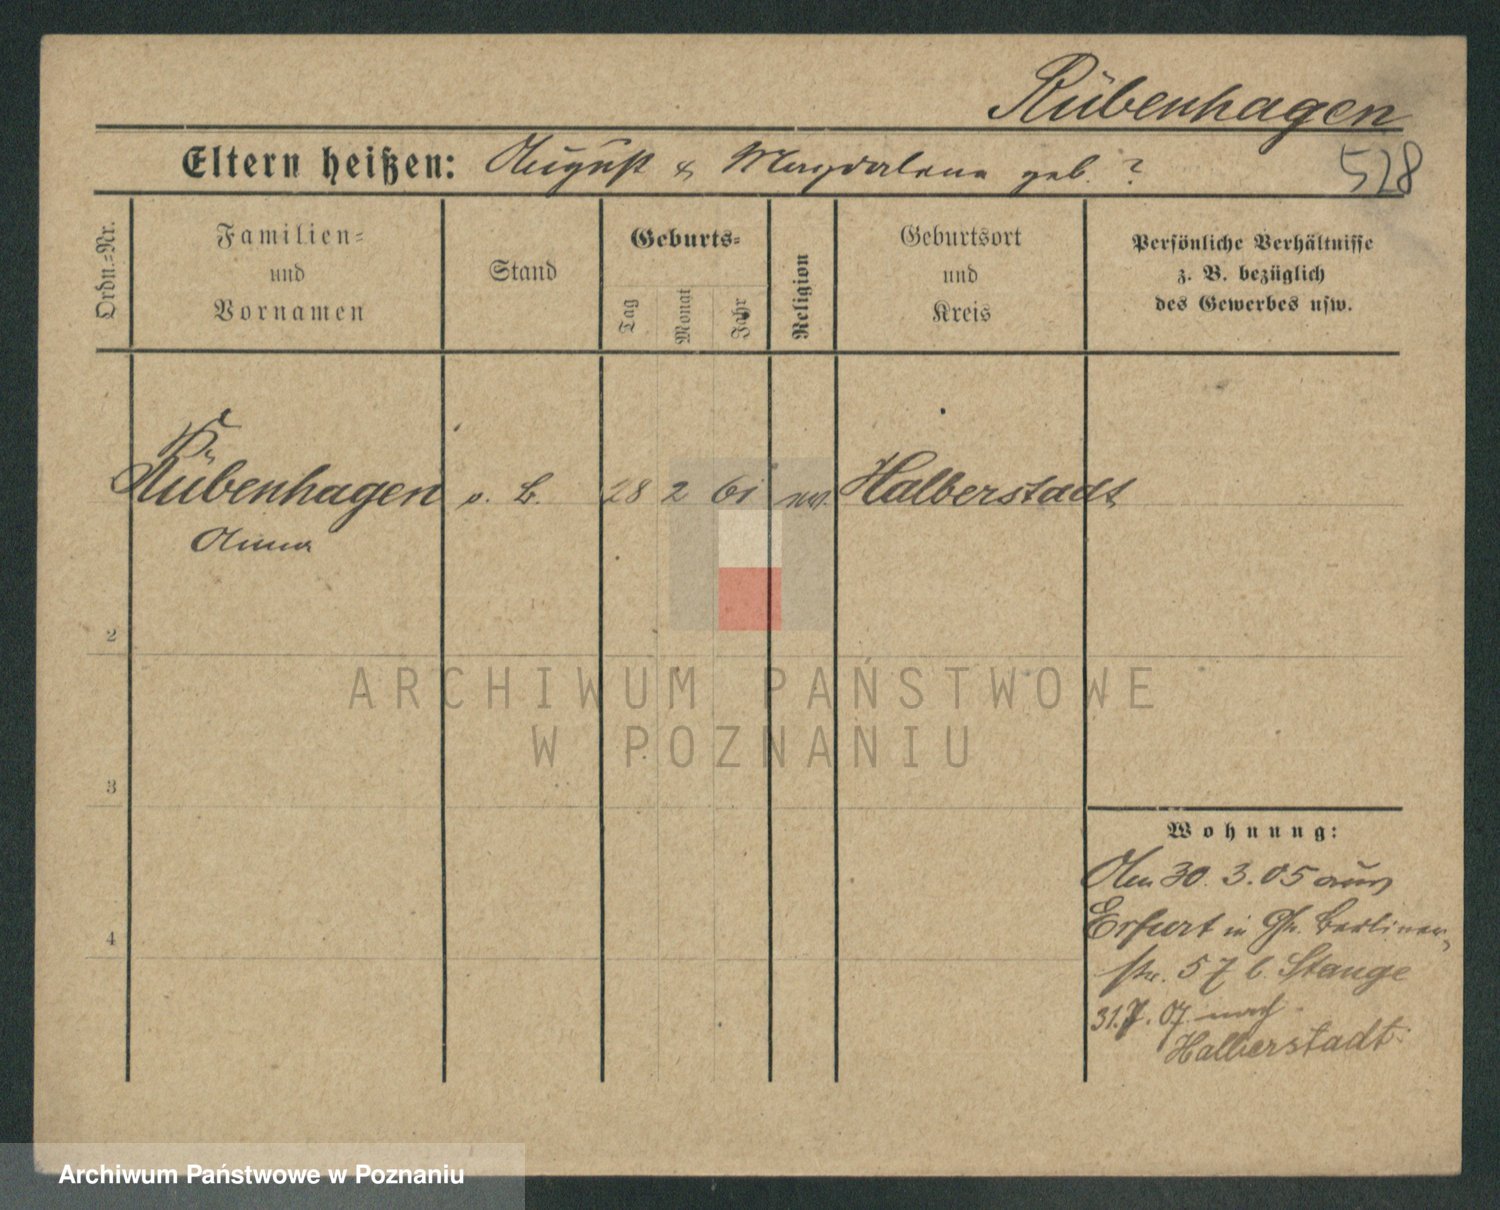 Rübenhagen
Eltern heißen: August & Magdalena geb. ?
528
Ordn.-Nr.
Familien-
und
Vornamen
Stand
Geburts-
Tag
Monat
Jahr
Religion
Geburtsort
und
Kreis
Persönliche Verhältnisse
z. B. bezüglich
des Gewerbes usw.
Rübenhagen o. B. 28 2 61 Halberstadt
Anna
2
3
4
Wohnung:
Am 30. 3. 05 aus
Erfurt in Berliner-
str. 57 b. Stange
31.7.07 nach
Halberstadt
ARCHIWUM PAŃSTWOWE
W POZNANIU
Archiwum Państwowe w Poznaniu